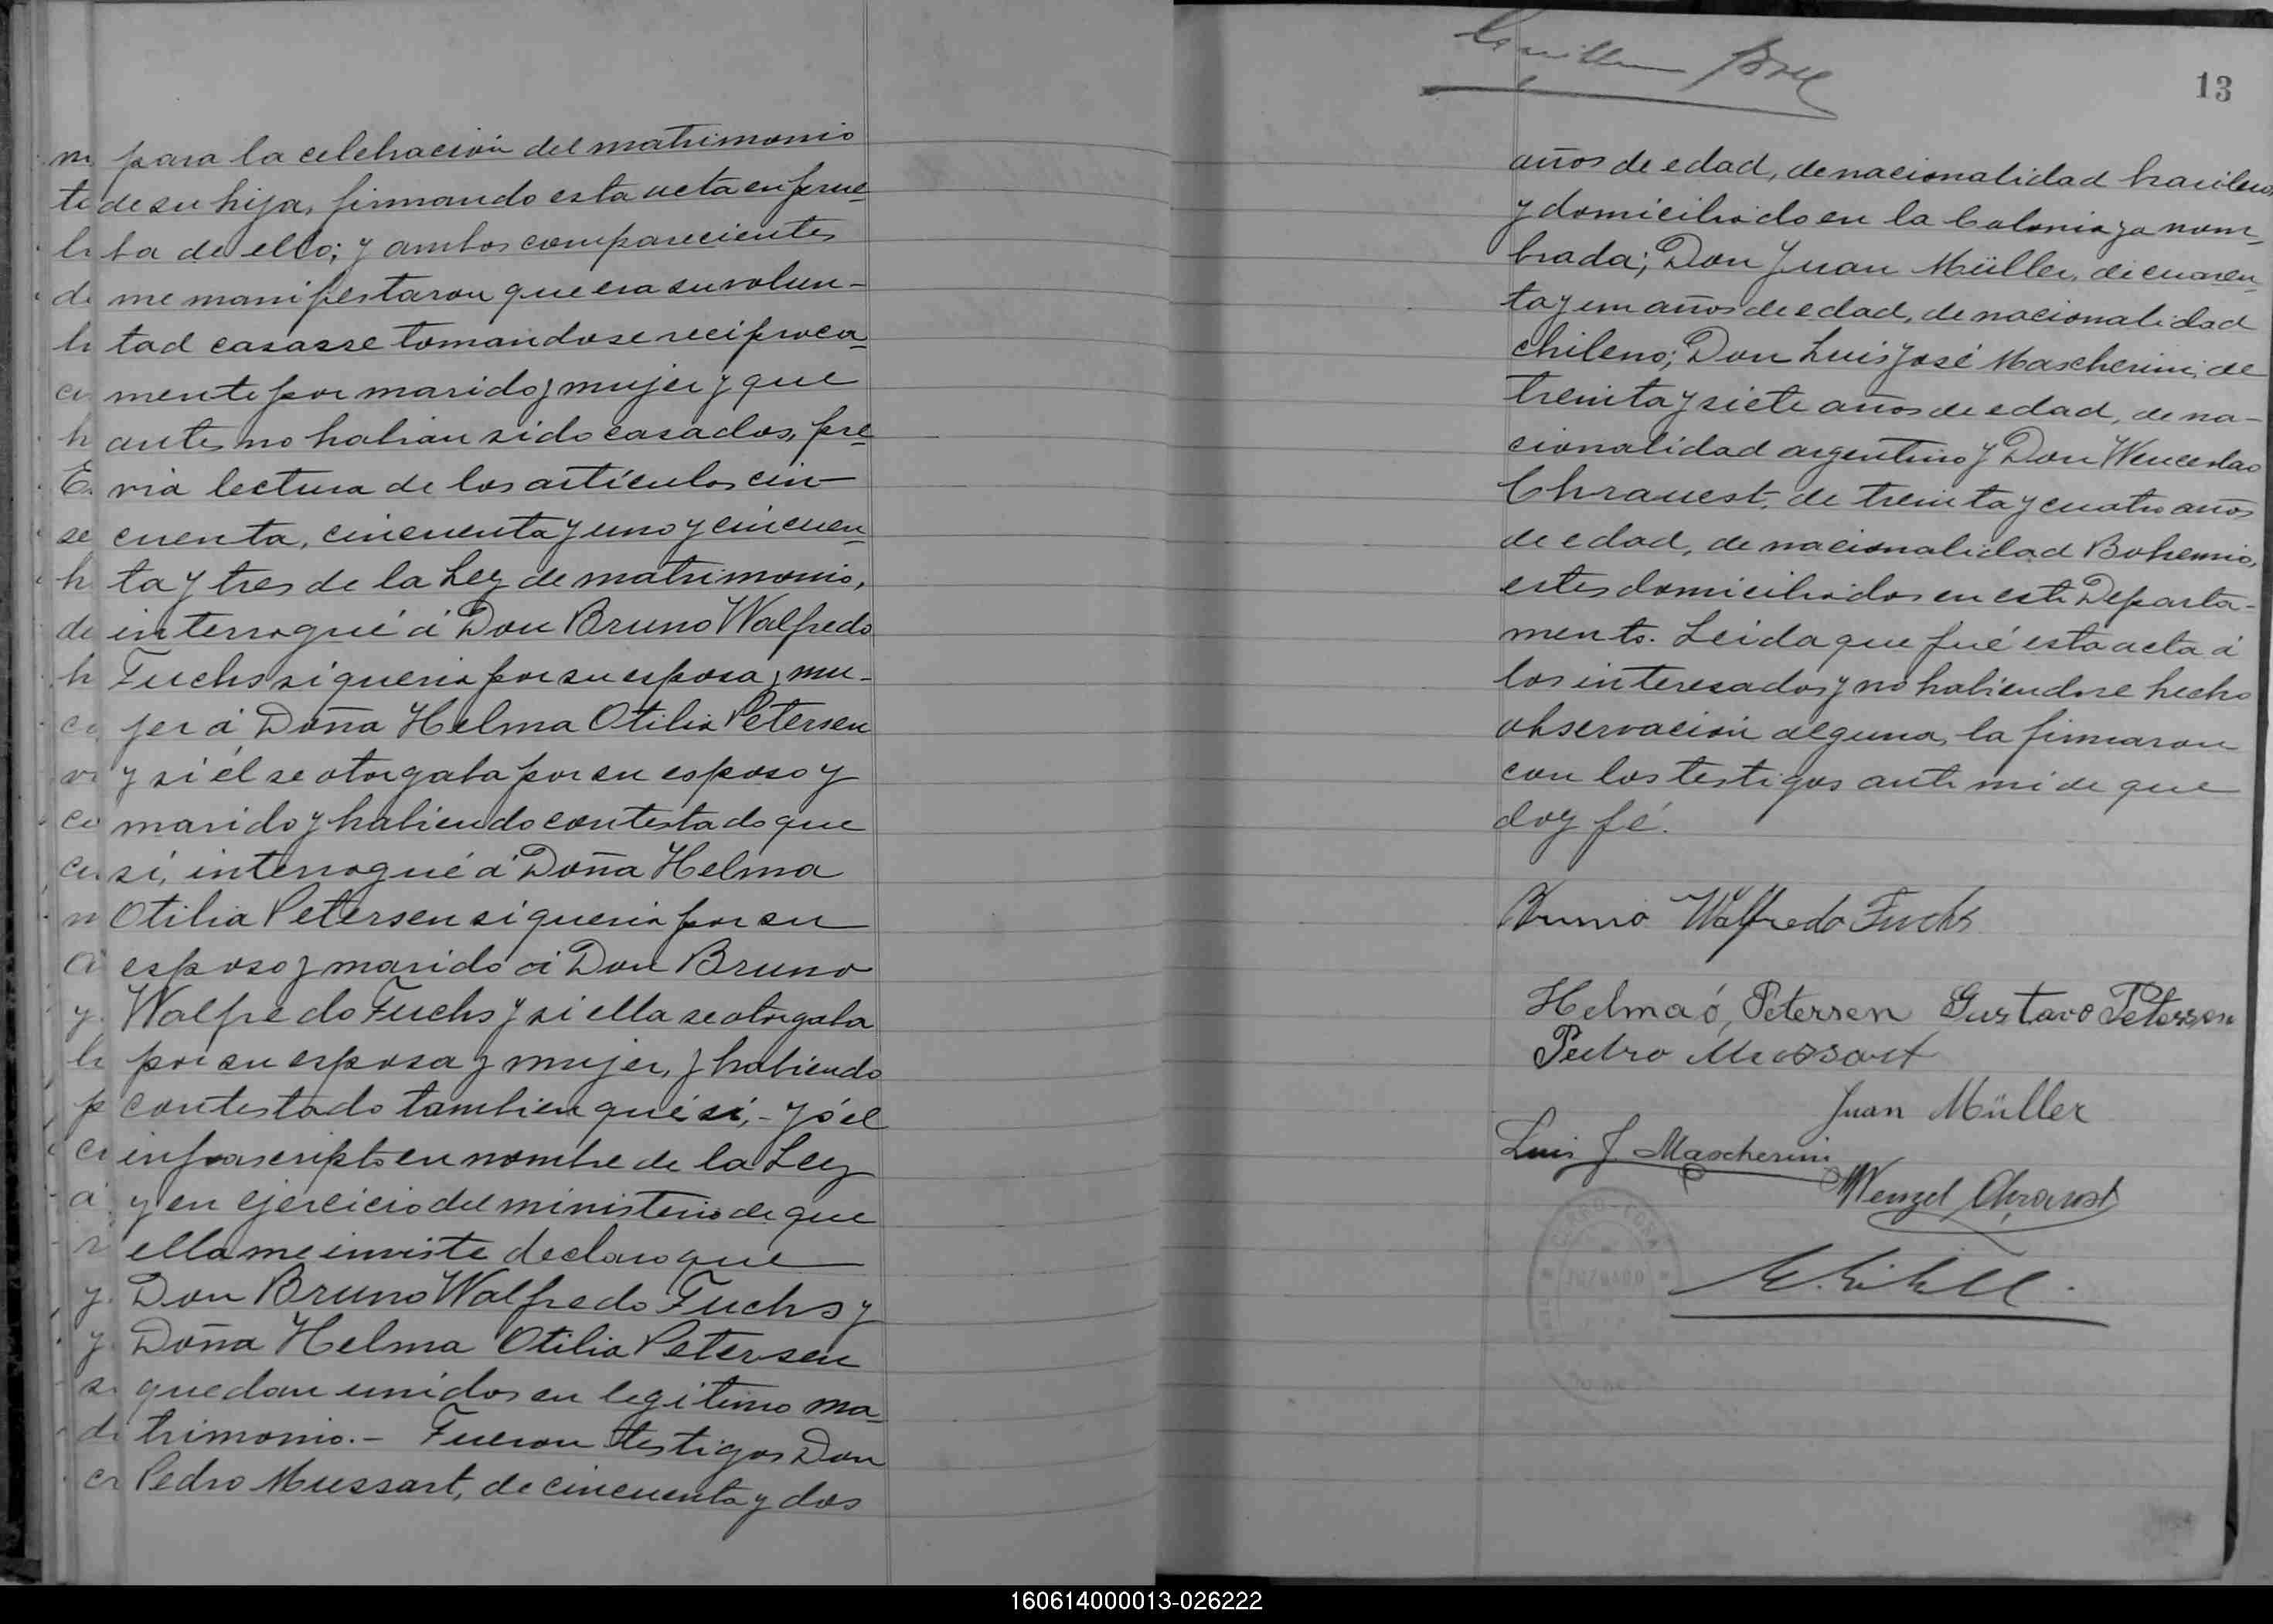 para la celebración del matrimonio
de su hija, firmando esta acta en prue-
ba de ello; y ambos comparecientes
me manifestaron que era su volun-
tad casarse tomandose reciproca-
mente por marido y mujer y que
antes no habian sido casados, pre-
via lectura de los artículos cin-
cuenta, cincuenta y uno y cincuen-
ta y tres de la Ley de matrimonio,
interrogué á Don Bruno Walfredo
Fuchs si queria por su esposa y mu-
jer á Doña Helma Otilia Petersen
y si él se otorgaba por su esposo y
marido y habiendo contestado que
si, interrogué á Doña Helma
Otilia Petersen si queria por su
esposo y marido á Don Bruno
Walfredo Fuchs y si ella se otorgaba
por su esposa y mujer, y habiendo
contestado tambien que sí, - yó él
infrascripto en nombre de la Ley
y en ejercicio del ministerio de que
ella me inviste declaro que
Don Bruno Walfredo Fuchs y
Doña Helma Otilia Petersen
quedan unidos en legitimo ma-
trimonio. - Fueron testigos Don
Pedro Mussart, de cincuenta y dos
13
años de edad, de nacionalidad brasilero,
y domiciliado en la Colonia ya nom-
brada; Don Juan Müller, de cuaren
ta y un años de edad, de nacionalidad
chileno; Don Luis José Mascherini, de
treinta y siete años de edad, de na-
cionalidad argentino y Don Wenceslao
Chrauest, de treinta y cuatro años
de edad, de nacionalidad Bohemio,
estes domiciliados en este Departa-
mento. Leida que fué esta acta á
los interesados y no habiendose hecho
observación alguna, la firmaron
con los testigos ante mi de que
doy fé.
Bruno Walfredo Fuchs
Helma O, Petersen Gustavo Petersen
Pedro Mussart
Juan Müller
Luis J. Mascherini
Wenzel Chraust
JUZGADO
160614000013-026222